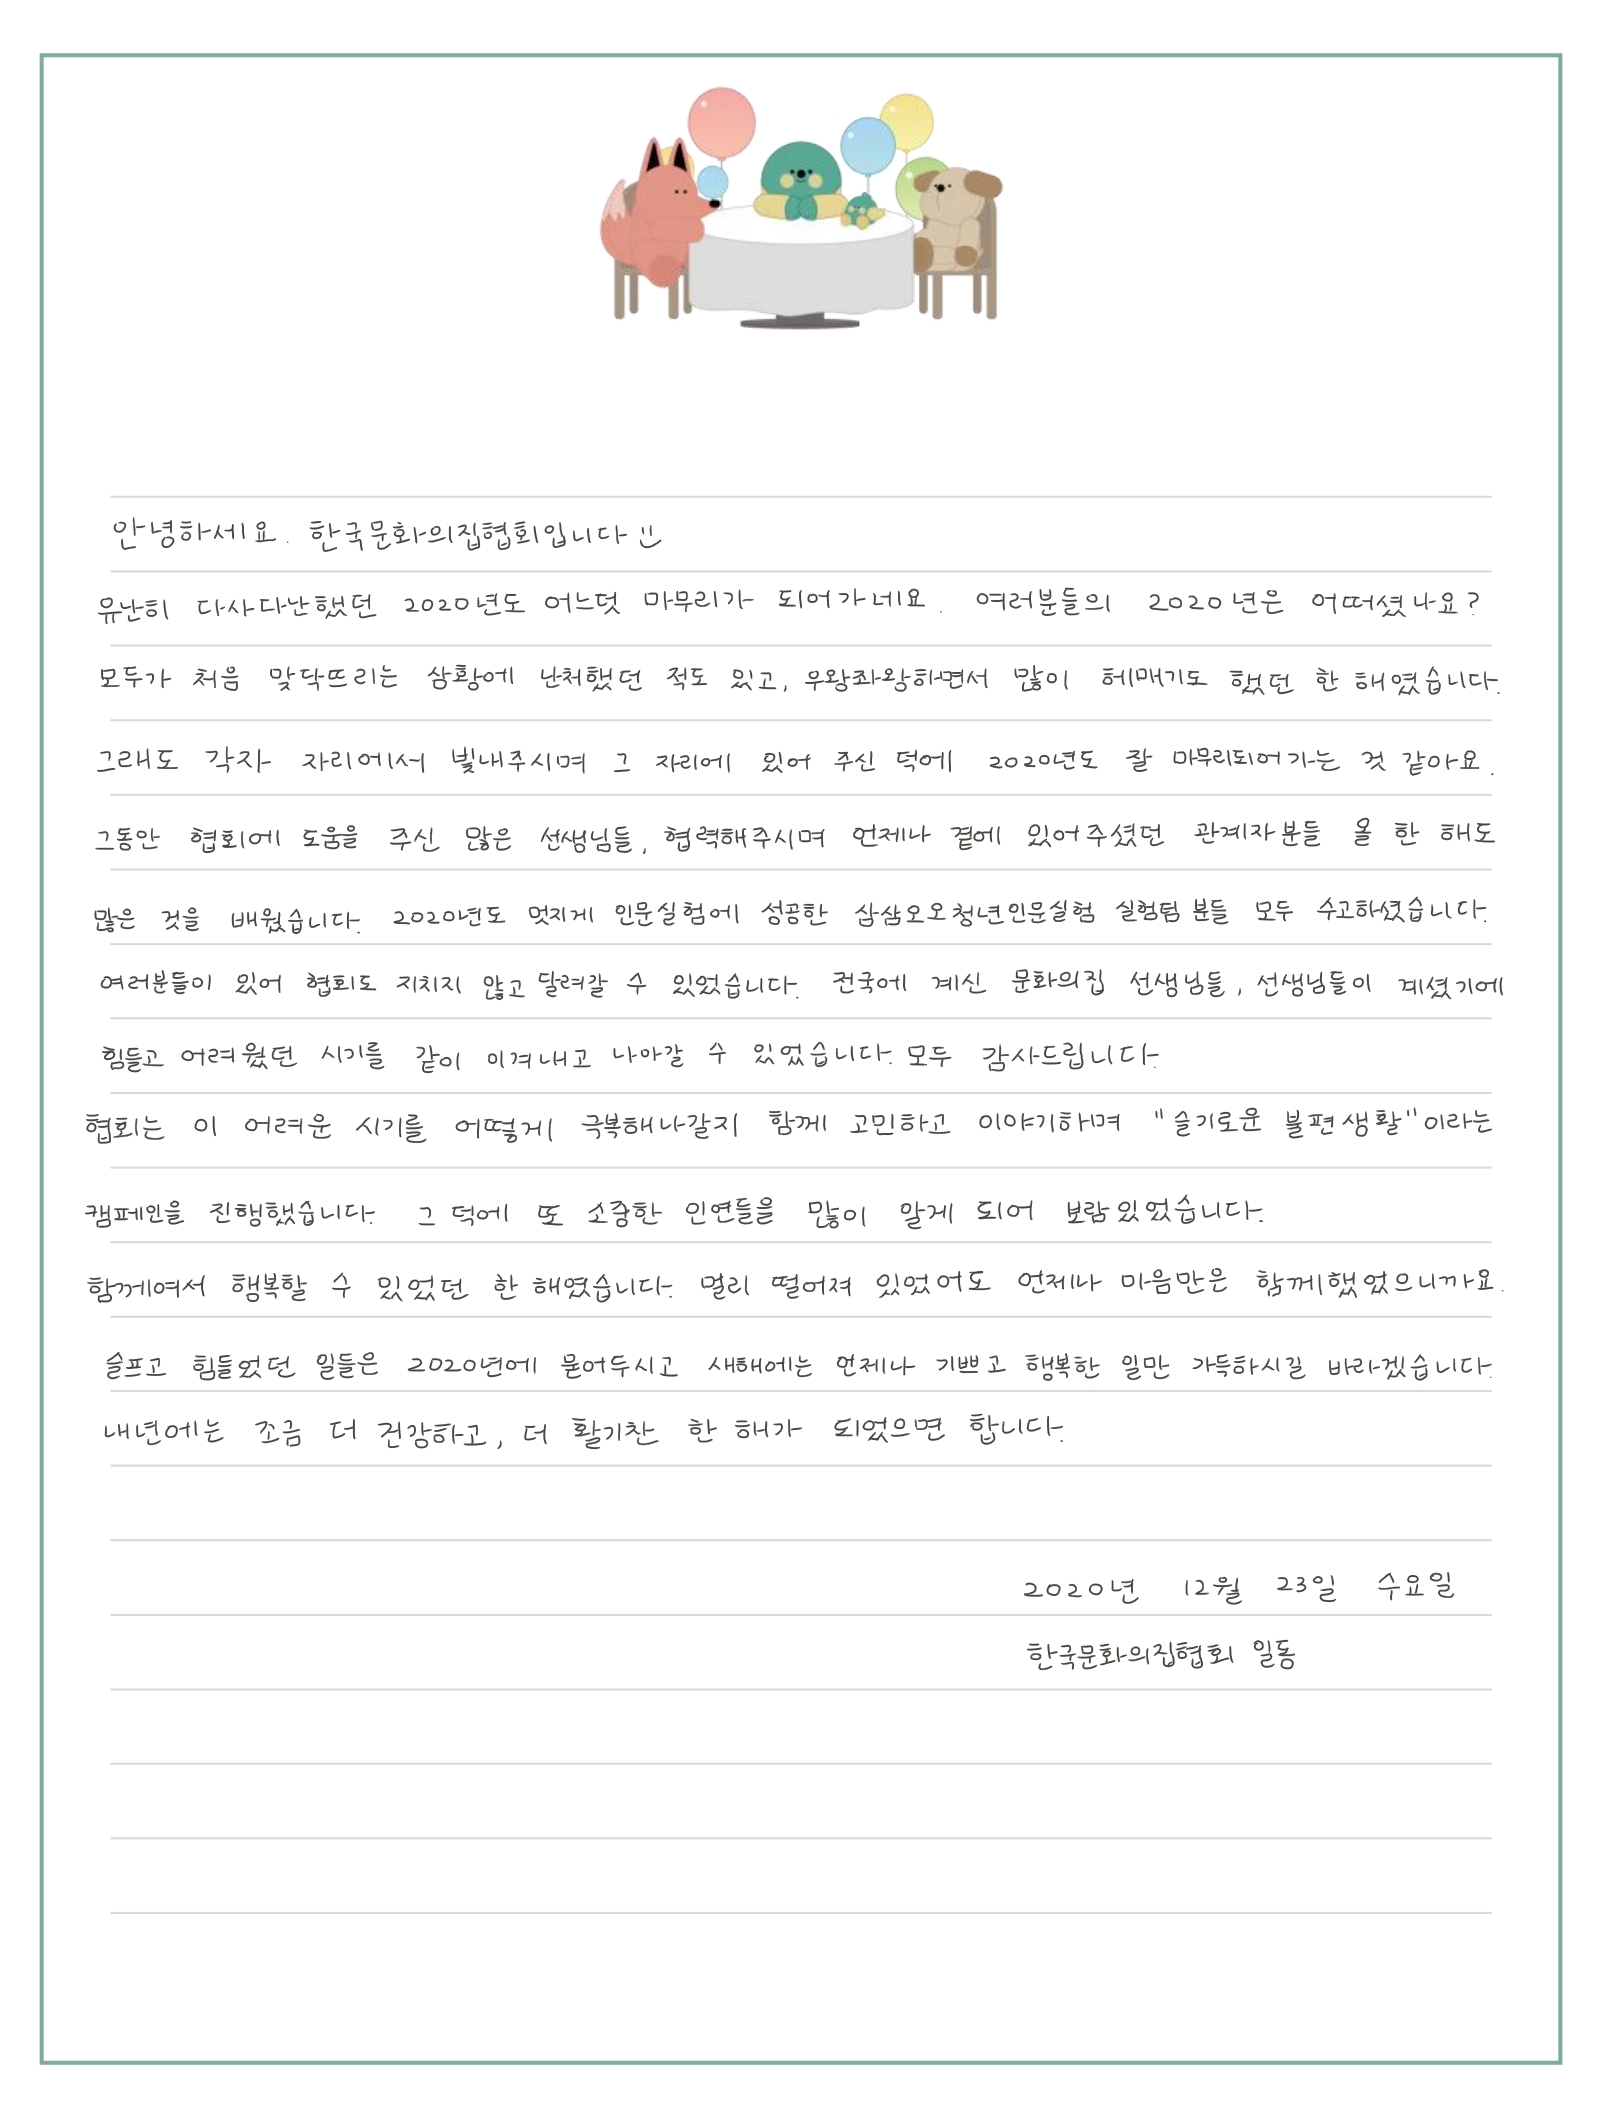 안녕하세요. 한국문화의집협회입니다 :)
유난히 다사다난했던 2020년도 어느덧 마무리가 되어가네요. 여러분들의 2020년은 어떠셨나요?
모두가 처음 맞닥뜨리는 상황에 난처했던 적도 있고, 우왕좌왕하면서 많이 헤매기도 했던 한 해였습니다.
그래도 각자 자리에서 빛내주시며 그 자리에 있어 주신 덕에 2020년도 잘 마무리되어가는 것 같아요.
그동안 협회에 도움을 주신 많은 선생님들, 협력해주시며 언제나 곁에 있어주셨던 관계자분들 올 한 해도
많은 것을 배웠습니다. 2020년도 멋지게 인문실험에 성공한 삼삼오오청년인문실험 실험팀분들 모두 수고하셨습니다.
여러분들이 있어 협회도 지치지 않고 달려갈 수 있었습니다. 전국에 계신 문화의집 선생님들, 선생님들이 계셨기에
힘들고 어려웠던 시기를 같이 이겨내고 나아갈 수 있었습니다. 모두 감사드립니다.
협회는 이 어려운 시기를 어떻게 극복해나갈지 함께 고민하고 이야기하며 "슬기로운 불편생활"이라는
캠페인을 진행했습니다. 그 덕에 또 소중한 인연들을 많이 알게 되어 보람있었습니다.
함께여서 행복할 수 있었던 한 해였습니다. 멀리 떨어져 있었어도 언제나 마음만은 함께했었으니까요.
슬프고 힘들었던 일들은 2020년에 묻어두시고 새해에는 언제나 기쁘고 행복한 일만 가득하시길 바라겠습니다.
내년에는 조금 더 건강하고, 더 활기찬 한 해가 되었으면 합니다.
2020년 12월 23일 수요일
한국문화의집협회 일동